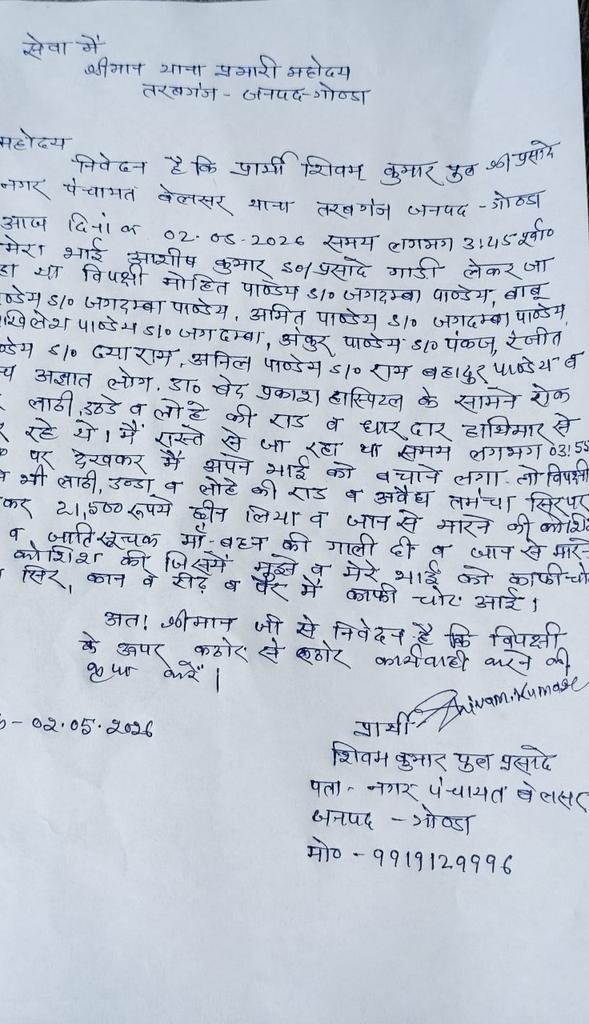 सेवा में
श्रीमान थाना प्रभारी महोदय
तरबगंज - जनपद-गोण्डा
महोदय
निवेदन है कि प्रार्थी शिवम् कुमार पुत्र श्री प्रसादे
नगर पंचायत बेलसर थाना तरबगंज जनपद - गोण्डा
आज दिनांक 02.05.2026 समय लगभग 3:45
मेरा भाई आशीष कुमार S/O प्रसादे गाडी लेकर जा
था विपक्षी मोहित पाण्डेय S/O जगदम्बा पाण्डेय, बाबू
S/O जगदम्बा पाण्डेय, अमित पाण्डेय S/O जगदम्बा पाण्डेय,
पाण्डेय S/O जगदम्बा, अंकुर पाण्डेय S/O पंकज, रंजीत
S/O दयाराम, अनिल पाण्डेय S/O राम बहादुर पाण्डेय व
अज्ञात लोग, डा० वेद प्रकाश हास्पिटल के सामने रोक
लाठी, डण्डे व लोहे की राड व धारदार हाथियार से
रहे थे। मैं रास्ते से जा रहा था समय लगभग 03:55
पर देखकर मैं अपने भाई को बचाने लगा तो विपक्षी
भी लाठी, डण्डा, व लोहे की राड व अवैध तमंचा सिरपर
21,500 रूपये छीन लिया व जान से मारने की
व जातिसूचक माँ-बहन की गाली दी व जान से मारने
कोशिश की जिसमें मुझे व मेरे भाई को काफी
सिर, कान व रीढ़ व पैर में काफी चोट आई।
अतः श्रीमान जी से निवेदन है कि विपक्षी
के ऊपर कठोर से कठोर कार्यवाही करने की
कृपा करें।
02.05.2026
प्रार्थी Shivam.Kumar
शिवम कुमार पुत्र प्रसादे
पता - नगर पंचायत बेलसर
जनपद - गोण्डा
मो० - 9919129996